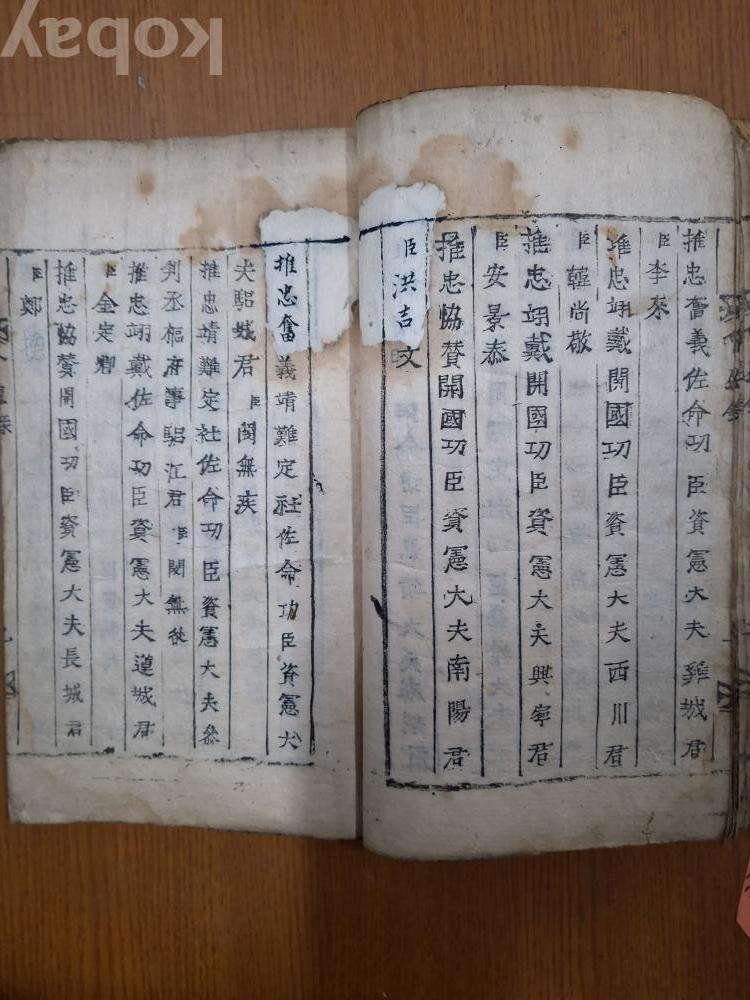 kobay
推忠奮義佐命功臣資憲大夫雞城君
臣李來
推忠翊戴開國功臣資憲大夫西川君
臣韓尚敬
推忠翊戴開國功臣資憲大夫興寧君
臣安景恭
推忠協賛開國功臣資憲大夫南陽君
臣洪吉旼
推忠奮義靖難定社佐命功臣資憲大
夫驪城君 臣閔無疾
推忠靖難定社佐命功臣資憲大夫叅
判丞樞府事驪江君 臣閔無咎
推忠翊戴佐命功臣資憲大夫蓮城君
臣金定卿
推忠協賛開國功臣資憲大夫長城君
臣鄭